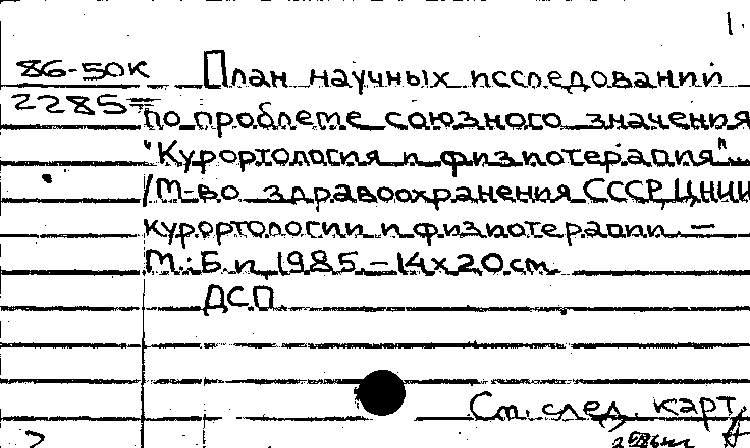 1.
86-50К
2285=
План научных исследований
по проблеме союзного значения
"Курортология и физиотерапия".
/М-во здравоохранения СССР, ЦНИИ
курортологии и физиотерапии. —
М.: Б.и, 1985. – 14х20см.
ДСП.
См. след. карт.